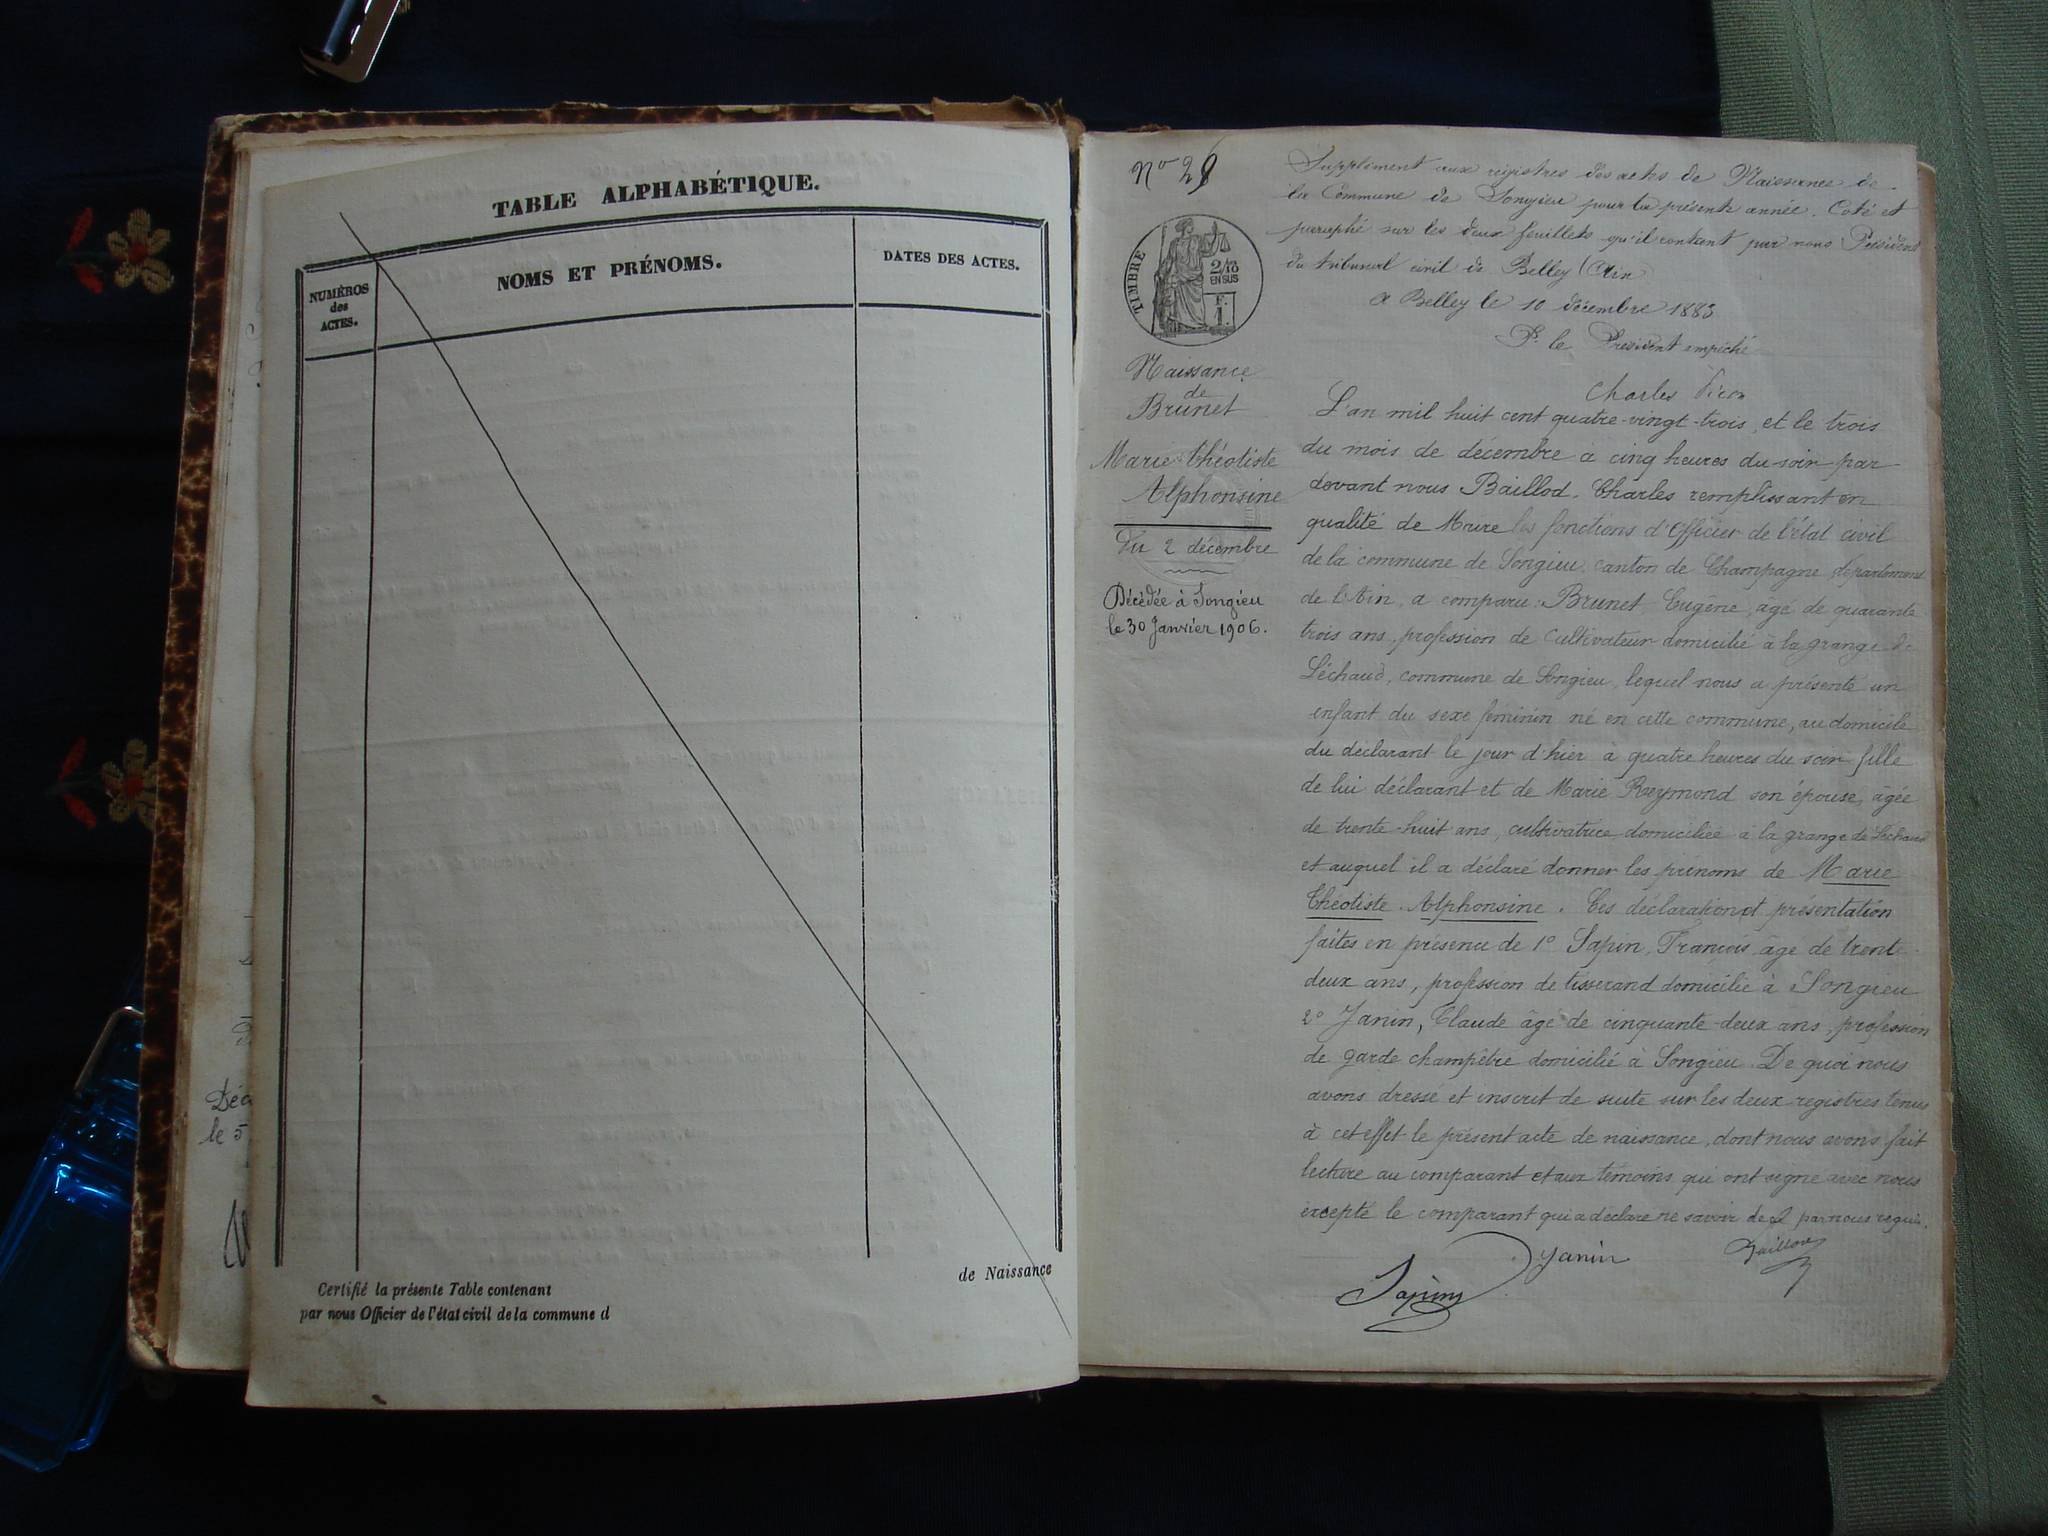 TABLE ALPHABÉTIQUE.
NUMÉROS
des
ACTES.
NOMS ET PRÉNOMS.
DATES DES ACTES.
de Naissance
Certifié la présente Table contenant
par nous Officier de l'état civil de la commune d
Déc
le 5
No 28
TIMBRE
2/10
EN SUS
F.
1.
Supplément aux registres des actes de Naissance de
la Commune de Songieu pour la présente année. Coté et
paraphé sur les deux feuillets qu'il contient par nous Président
du tribunal civil de Belley (Ain
à Belley le 10 décembre 1883
Pr le Président empêché
Charles
Naissance
de
Brunet
Marie Théotiste
Alphonsine
Du 2 décembre
Décédée à Songieu
le 30 Janvier 1906.
L'an mil huit cent quatre-vingt-trois, et le trois
du mois de décembre à cinq heures du soir par
devant nous Baillod, Charles remplissant en
qualité de Maire les fonctions d'Officier de l'état civil
de la commune de Songieu, canton de Champagne, département
de l'Ain, a comparu: Brunet Eugène, âgé de quarante
trois ans, profession de cultivateur domicilié à la grange de
Léchaud, commune de Songieu, lequel nous a présenté un
enfant du sexe féminin né en cette commune, au domicile
du déclarant le jour d'hier à quatre heures du soir fille
de lui déclarant et de Marie Reymond son épouse, âgée
de trente-huit ans, cultivatrice domiciliée à la grange de Léchaud
et auquel il a déclaré donner les prénoms de Marie
Théotiste Alphonsine. Ces déclaration et présentation
faites en présence de 1o Sapin, François, âgé de trente
deux ans, profession de tisserand domicilié à Songieu
2o Janin, Claude âgé de cinquante-deux ans, profession
de garde champêtre domicilié à Songieu. De quoi nous
avons dressé et inscrit de suite sur les deux registres tenus
à cet effet le présent acte de naissance, dont nous avons fait
lecture au comparant et aux témoins qui ont signé avec nous
excepté le comparant qui a déclaré ne savoir de par nous requis.
Janin
Baillod
Sapin